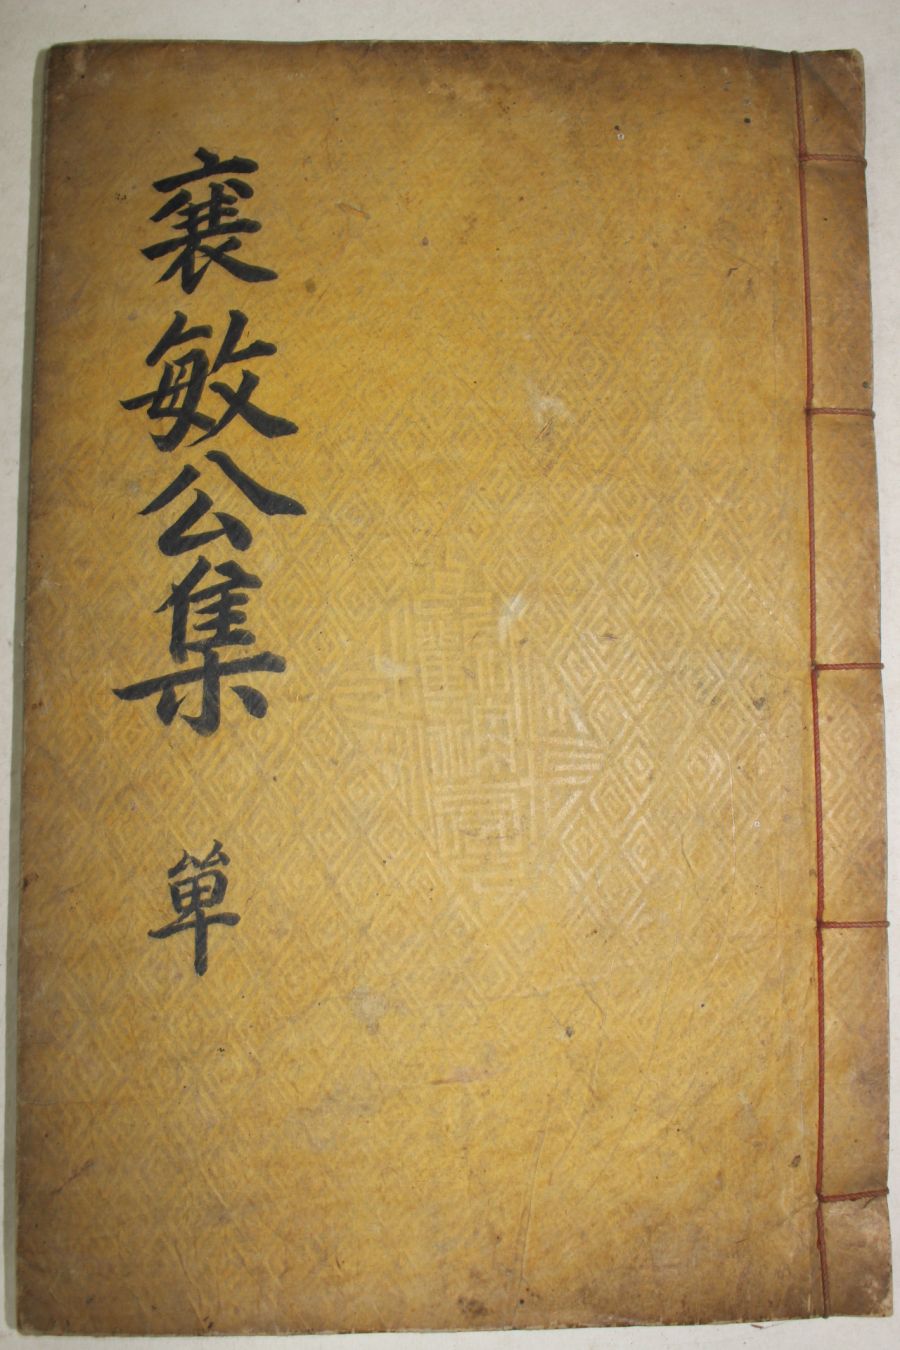 襄敏公集
單